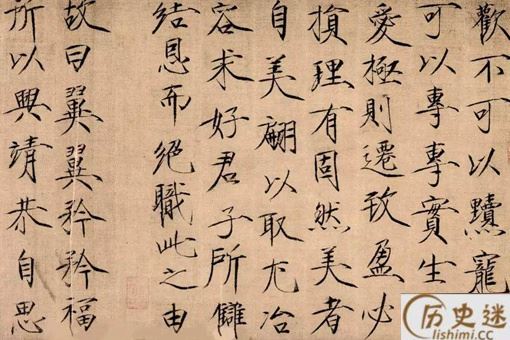 歡不可以黷寵
可以專專實生
愛極則遷致盈必
損理有固然美者
自美翩以取尤冶
容求好君子所讎
結恩而絕職此之由
故曰翼翼矜矜福
所以興靖恭自思
历史迷
lishimi.cc